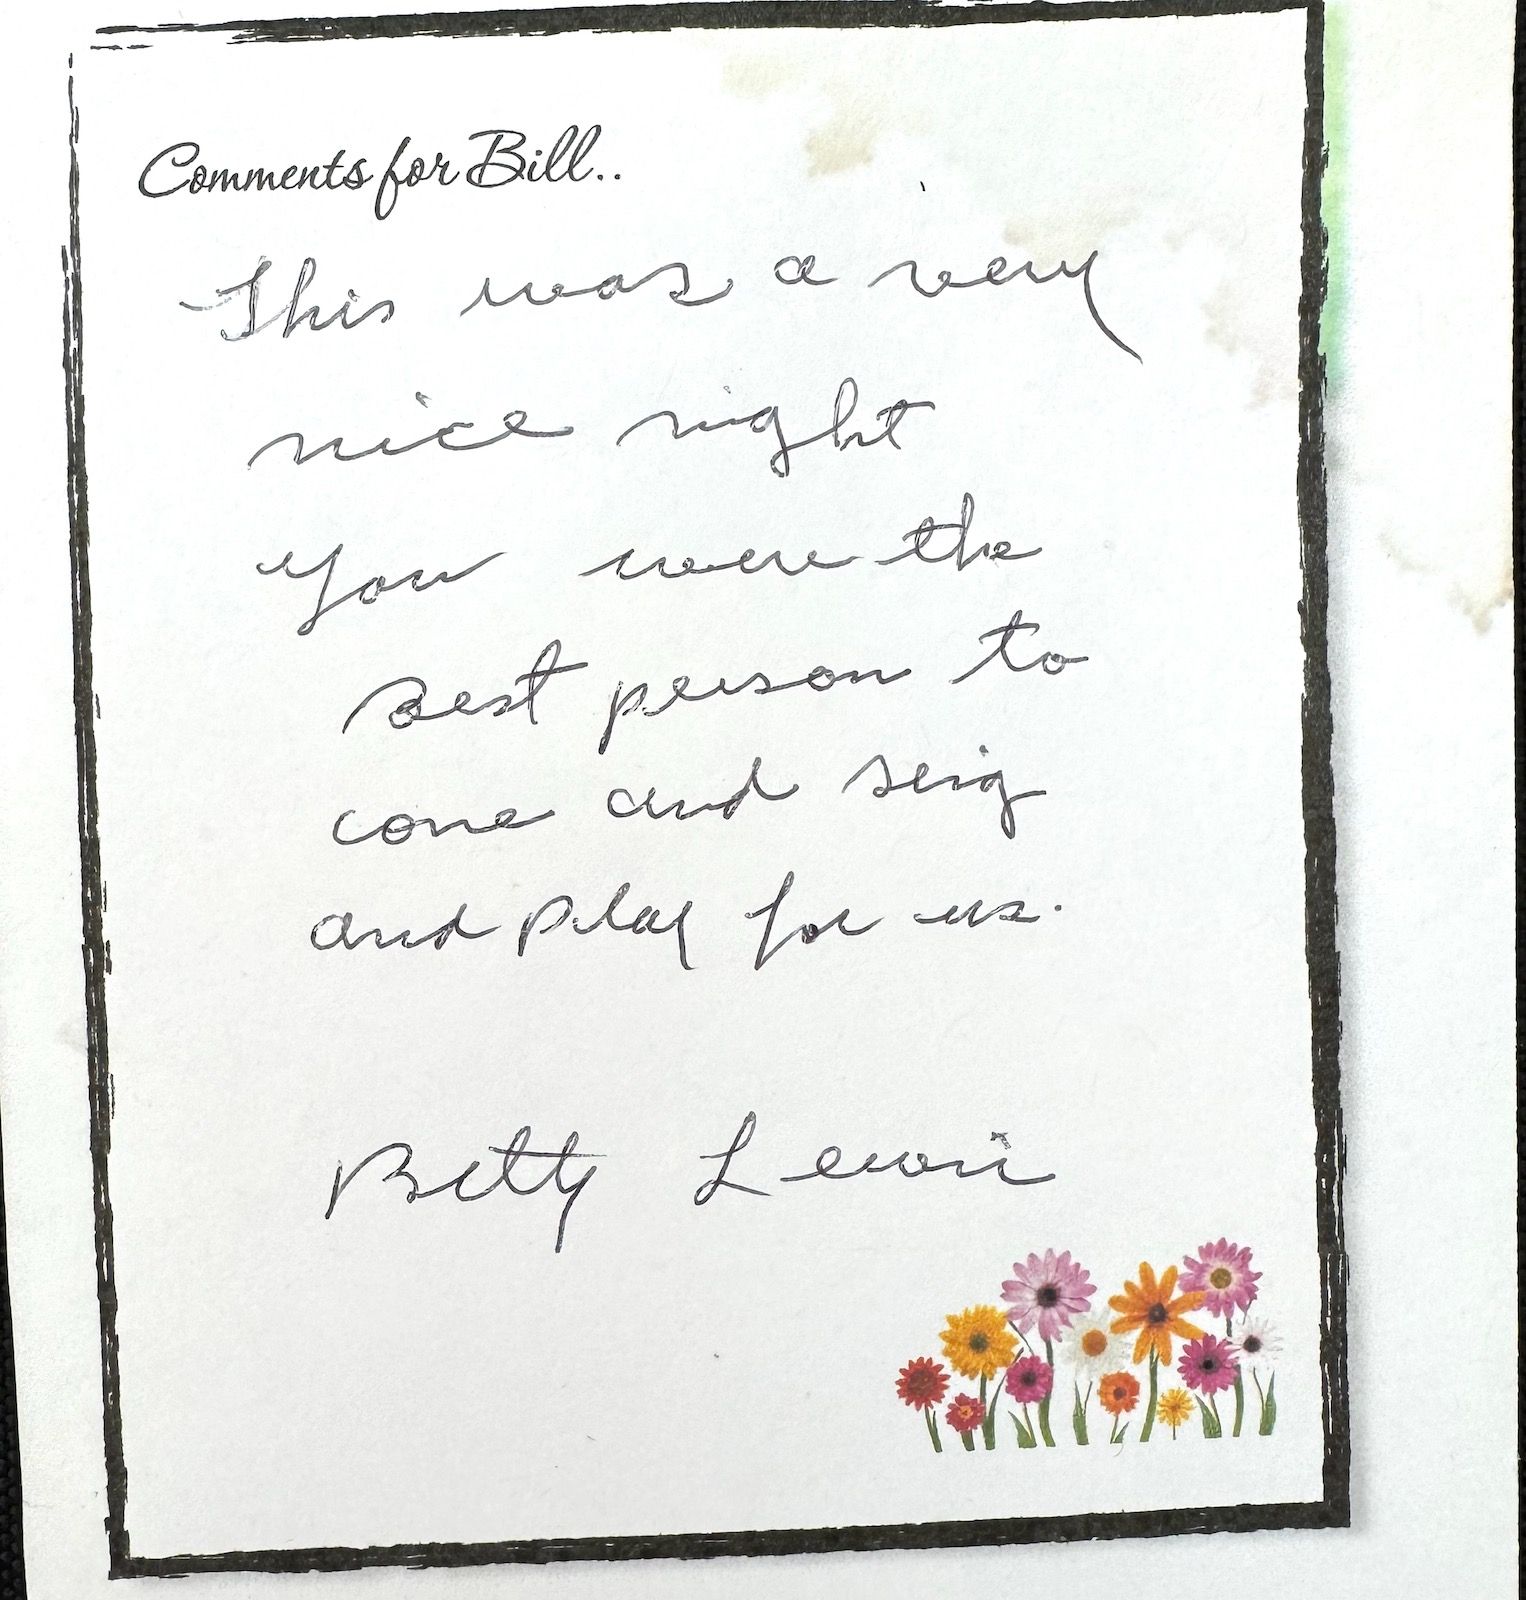 Comments for Bill..
This was a very
nice night
You were the
Best person to
come and sing
and play for us.
Betty Lewis